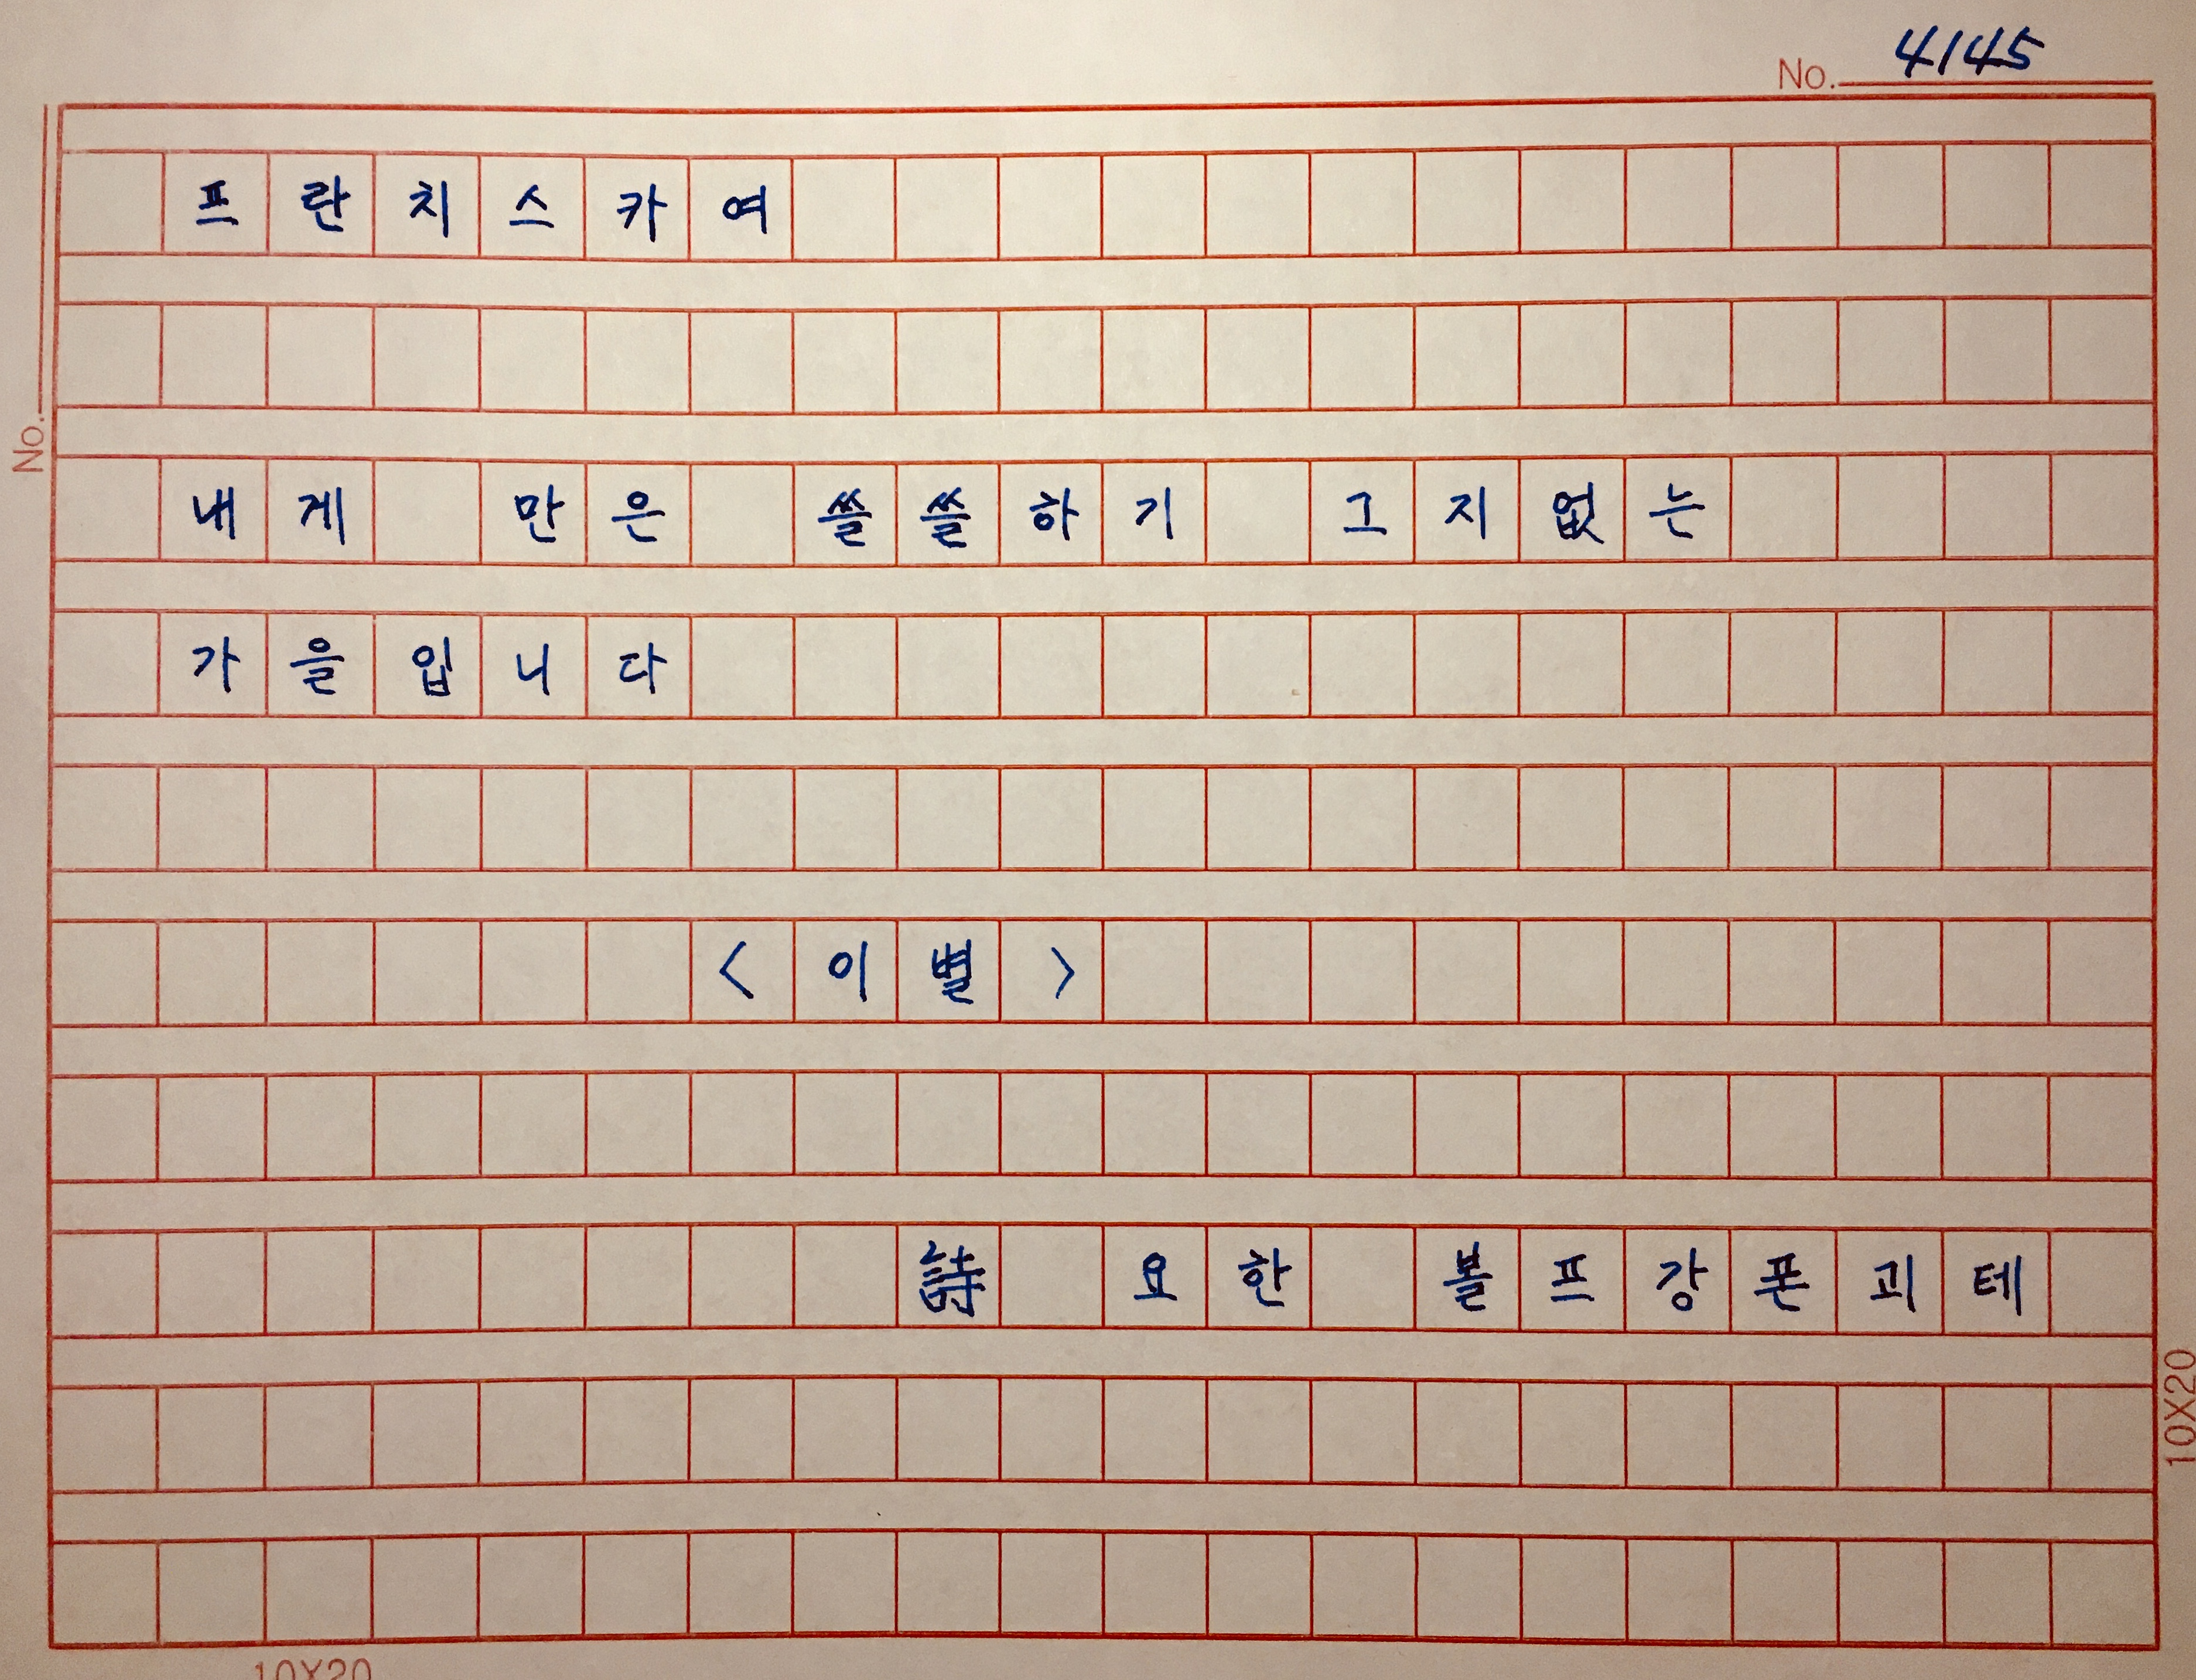 No. 4145
프란치스카여
내게 만은 쓸쓸하기 그지없는
가을입니다
<이별>
詩 요한 볼프강폰괴테
No.
10X20
10X20